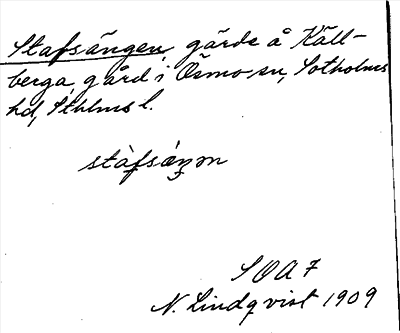 Stafsängen, gärde å Käll-
berga gård i Ösmo sn, Sotholms
hd, Sthlms l.
stàfsáŋən
SOA 7
N. Lindqvist 1909